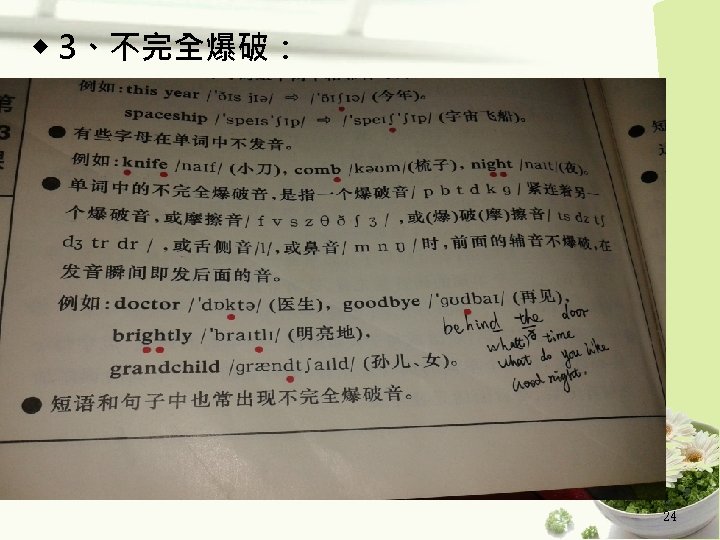 ◆ 3、不完全爆破：
例如:this year /'ðɪs jɪə/ ⇨ /'ðɪʃɪə/ (今年)。
spaceship /'speɪsˈʃɪp/ ⇨ /'speɪʃˈʃɪp/ (宇宙飞船)。
第
3
● 有些字母在单词中不发音。
例如:knife /naɪf/ (小刀), comb /kəʊm/(梳子), night /naɪt/(夜)。
● 单词中的不完全爆破音,是指一个爆破音/ p b t d k g /紧连着另一
个爆破音,或摩擦音/ f v s z θ ð ʃ ʒ / ,或(爆)破(摩)擦音/ ts dz tʃ
dʒ tr dr / ,或舌侧音/l/,或鼻音/ m n ŋ / 时,前面的辅音不爆破,在
发音瞬间即发后面的音。
例如:doctor /'dɒktə/ (医生), goodbye /'gʊdbaɪ/ (再见),
brightly /'braɪtlɪ/ (明亮地),
grandchild /grændtʃaɪld/ (孙儿、女)。
behind the door
what(t)'s time
what do you like
Good night.
● 短语和句子中也常出现不完全爆破音。
24